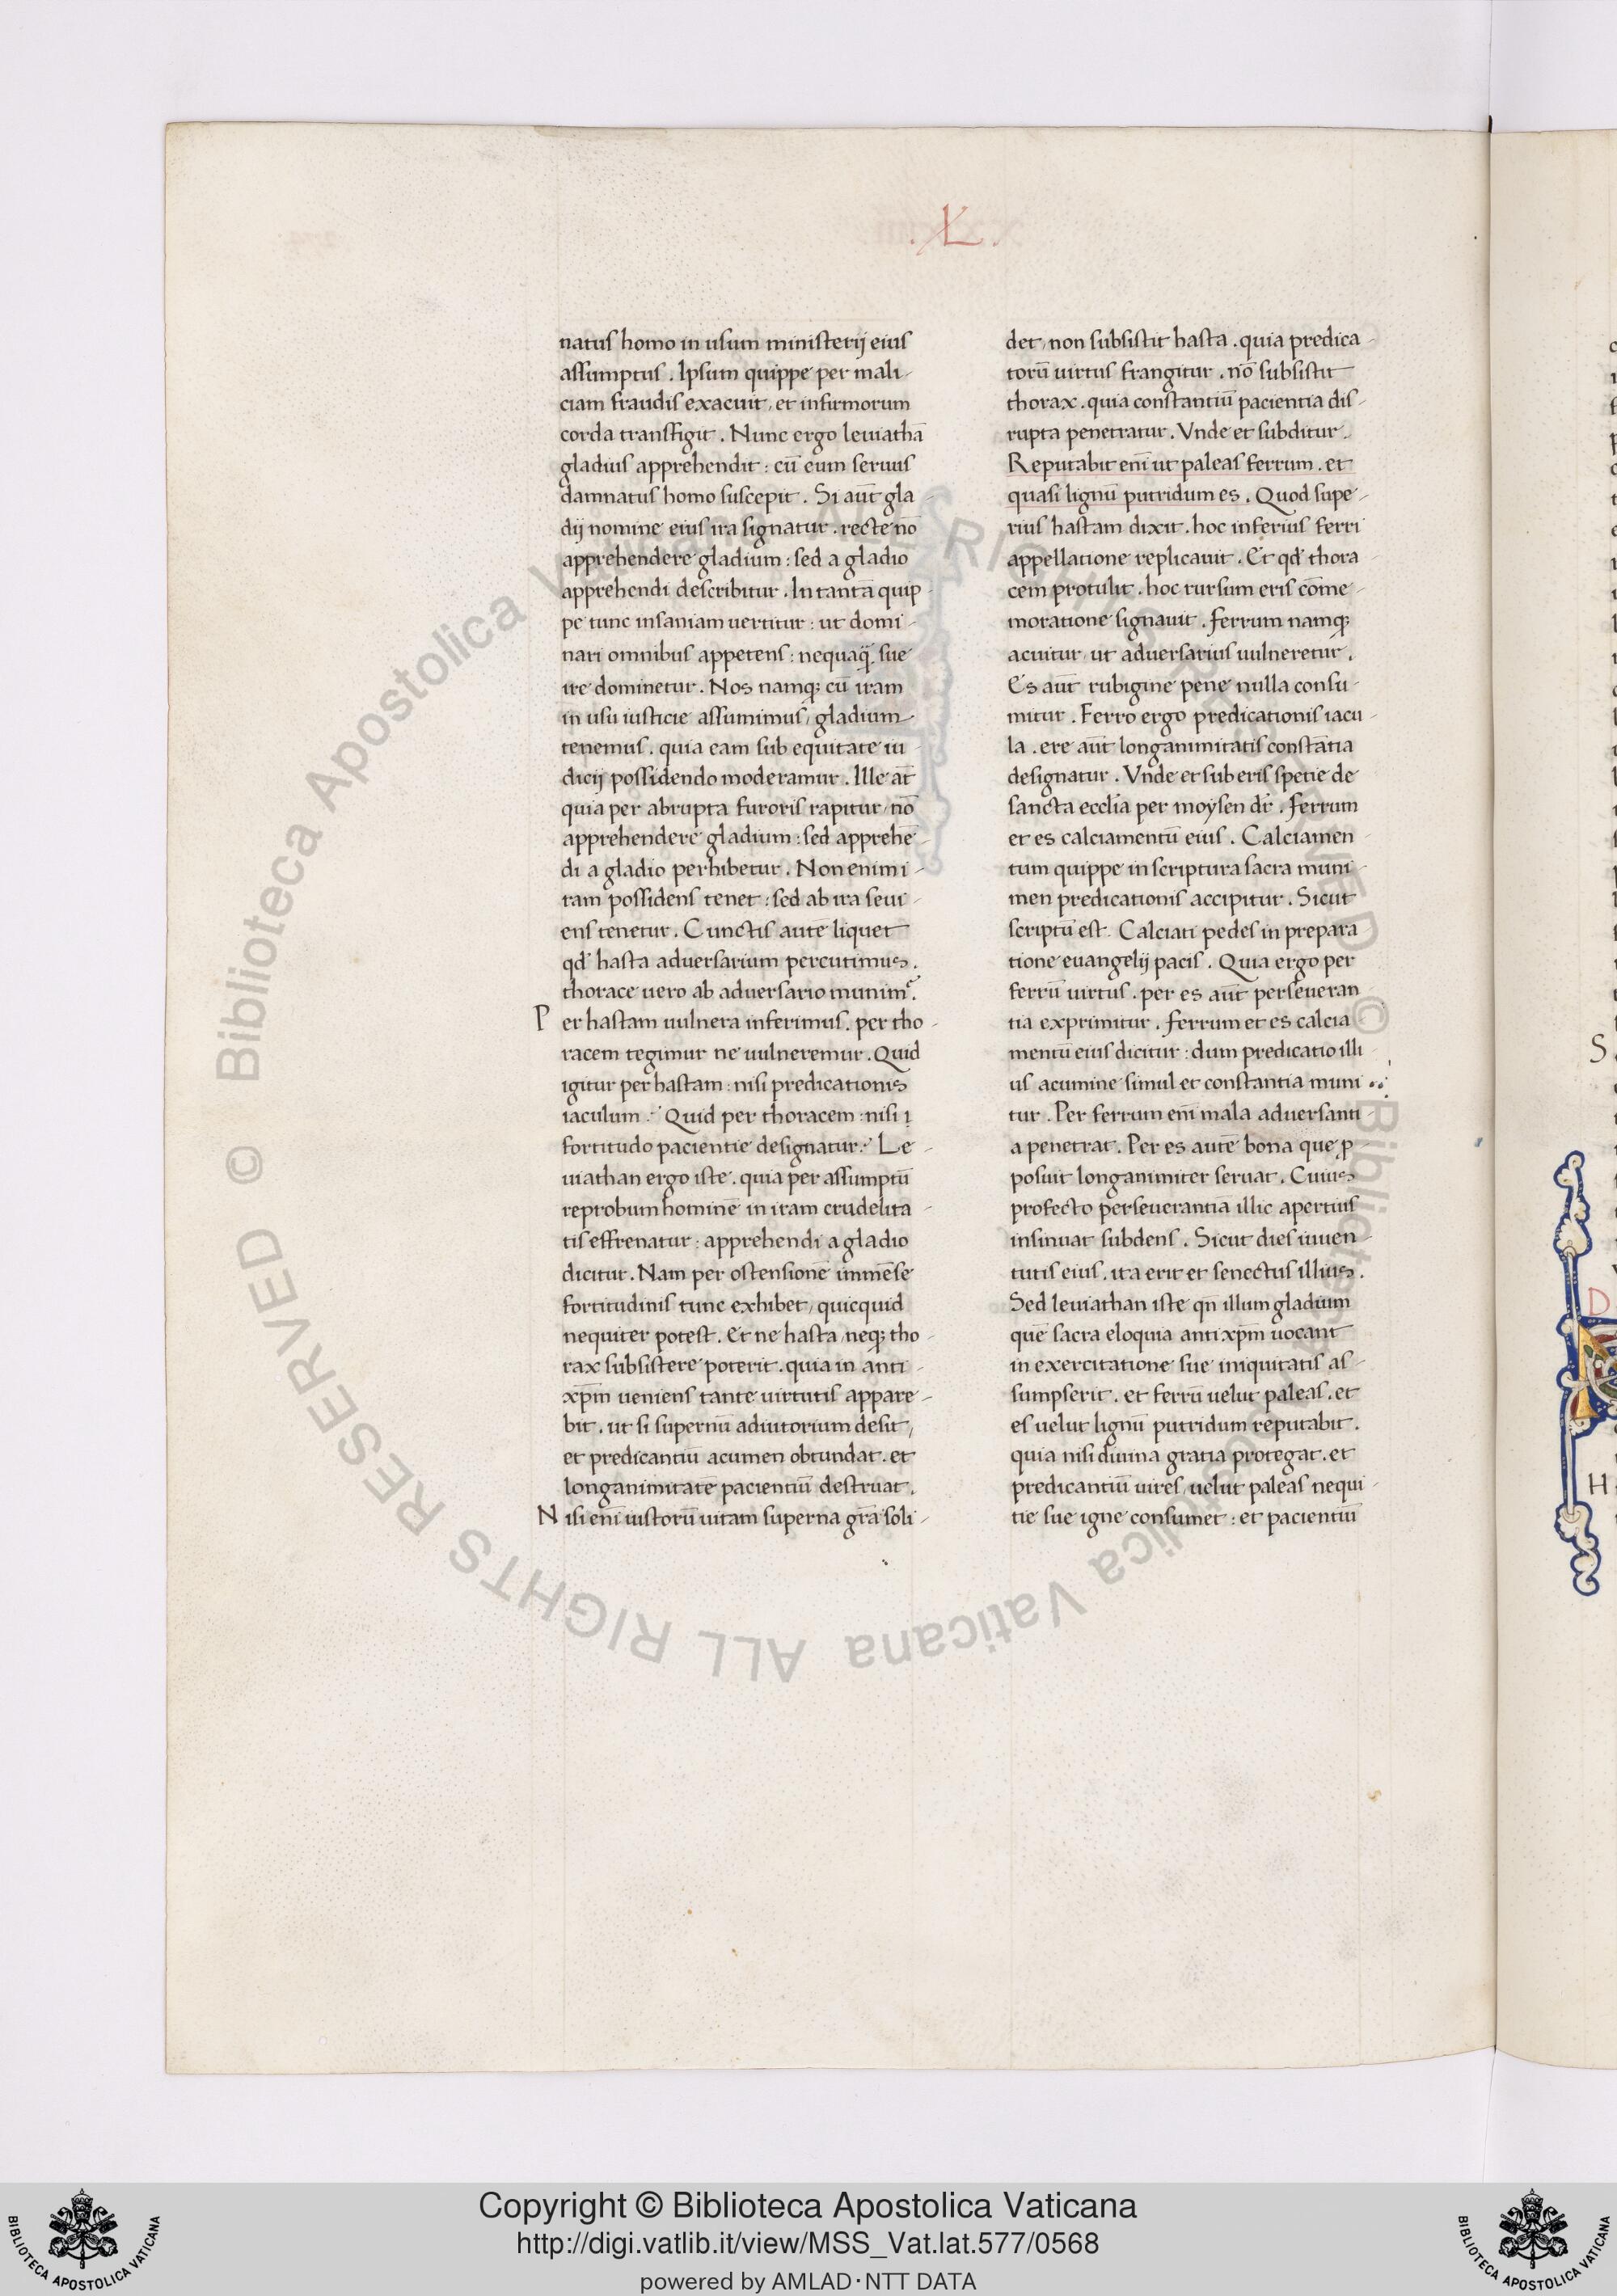 .XL.
natus homo in usum ministerij eius
assumptus. Ipsum quippe per mali-
ciam fraudis exacuit, et infirmorum
corda transfigit. Nunc ergo leuiathā
gladius apprehendit: cū eum seruus
damnatus homo suscepit. Si aūt gla-
dij nomine eius ira signatur. recte nō
apprehendere gladium: sed a gladio
apprehendi describitur. In tantā quip-
pe tunc insaniam uertitur: ut domi-
nari omnibus appetens: nequaq̄ sue
ire dominetur. Nos namq; cū iram
in usu iusticie assumimus, gladium
tenemus. quia eam sub equitate iu-
dicij possidendo moderamur. Ille at̄
quia per abrupta furoris rapitur, nō
apprehendere gladium: sed apprehē-
di a gladio perhibetur. Non enim i-
ram possidens tenet: sed ab ira seui-
ens tenetur. Cunctis autē liquet
qđ hasta aduersarium percutimus.
thorace uero ab aduersario munim᷑.
Per hastam uulnera inferimus. per tho-
racem tegimur ne uulneremur. Quid
igitur per hastam: nisi predicationis
iaculum? Quid per thoracem: nisi
fortitudo pacientie designatur? Le-
uiathan ergo iste. quia per assumptū
reprobum hominē in iram crudelita-
tis effrenatur: apprehendi a gladio
dicitur. Nam per ostensionē immēse
fortitudinis tunc exhibet, quicquid
nequiter potest. Et ne hasta, neq; tho-
rax subsistere poterit. quia in anti-
xp̄m ueniens tante uirtutis appare-
bit. ut si supernū adiutorium desit,
et predicantiū acumen obtundat. et
longanimitatē pacientiū destruat.
Nisi enī iustorū uitam superna grā soli-
det, non subsistit hasta. quia predica-
torū uirtus frangitur. nō subsistit
thorax. quia constantiū pacientia dis-
rupta penetratur. Vnde et subditur.
Reputabit enī ut paleas ferrum. et
quasi lignū putridum es. Quod supe-
rius hastam dixit. hoc inferius ferri
appellatione replicauit. Et qđ thora-
cem protulit. hoc rursum eris cōme-
moratione signauit. ferrum namq;
acuitur, ut aduersarius uulneretur.
Es aūt rubigine pene nulla consu-
mitur. Ferro ergo predicationis iacu-
la. ere aūt longanimitatis constātia
designatur. Vnde et sub eris spetie de
sancta ecclīa per moysen dr̄. ferrum
et es calciamentū eius. Calciamen-
tum quippe in scriptura sacra muni-
men predicationis accipitur. Sicut
scriptū est. Calciati pedes in prepara
tione euangelij pacis. Quia ergo per
ferrū uirtus. per es aūt perseueran
tia exprimitur. ferrum et es calcia
mentū eius dicitur: dum predicatio illi
us acumine simul et constantia muni
tur. Per ferrum enī mala aduersanti-
a penetrat. Per es autē bona que p
posuit longanimiter seruat. Cuius
profecto perseuerantiā illic apertius
insinuat subdens. Sicut dies iuuen-
tutis eius. ita erit et senectus illius.
Sed leuiathan iste qn̄ illum gladium
quē sacra eloquia antixp̄m uocant
in exercitatione sue iniquitatis as-
sumpserit. et ferrū uelut paleas. et
es uelut lignū putridum reputabit.
quia nisi diuina gratia protegat. et
predicantiū uires, uelut paleas nequi-
tie sue igne consumet: et pacientiū
Copyright © Biblioteca Apostolica Vaticana
http://digi.vatlib.it/view/MSS_Vat.lat.577/0568
powered by AMLAD·NTT DATA
BIBLIOTECA APOSTOLICA VATICANA
BIBLIOTECA APOSTOLICA VATICANA
© Biblioteca Apostolica Vaticana ALL RIGHTS RESERVED © Biblioteca Apostolica Vaticana ALL RIGHTS RESERVED